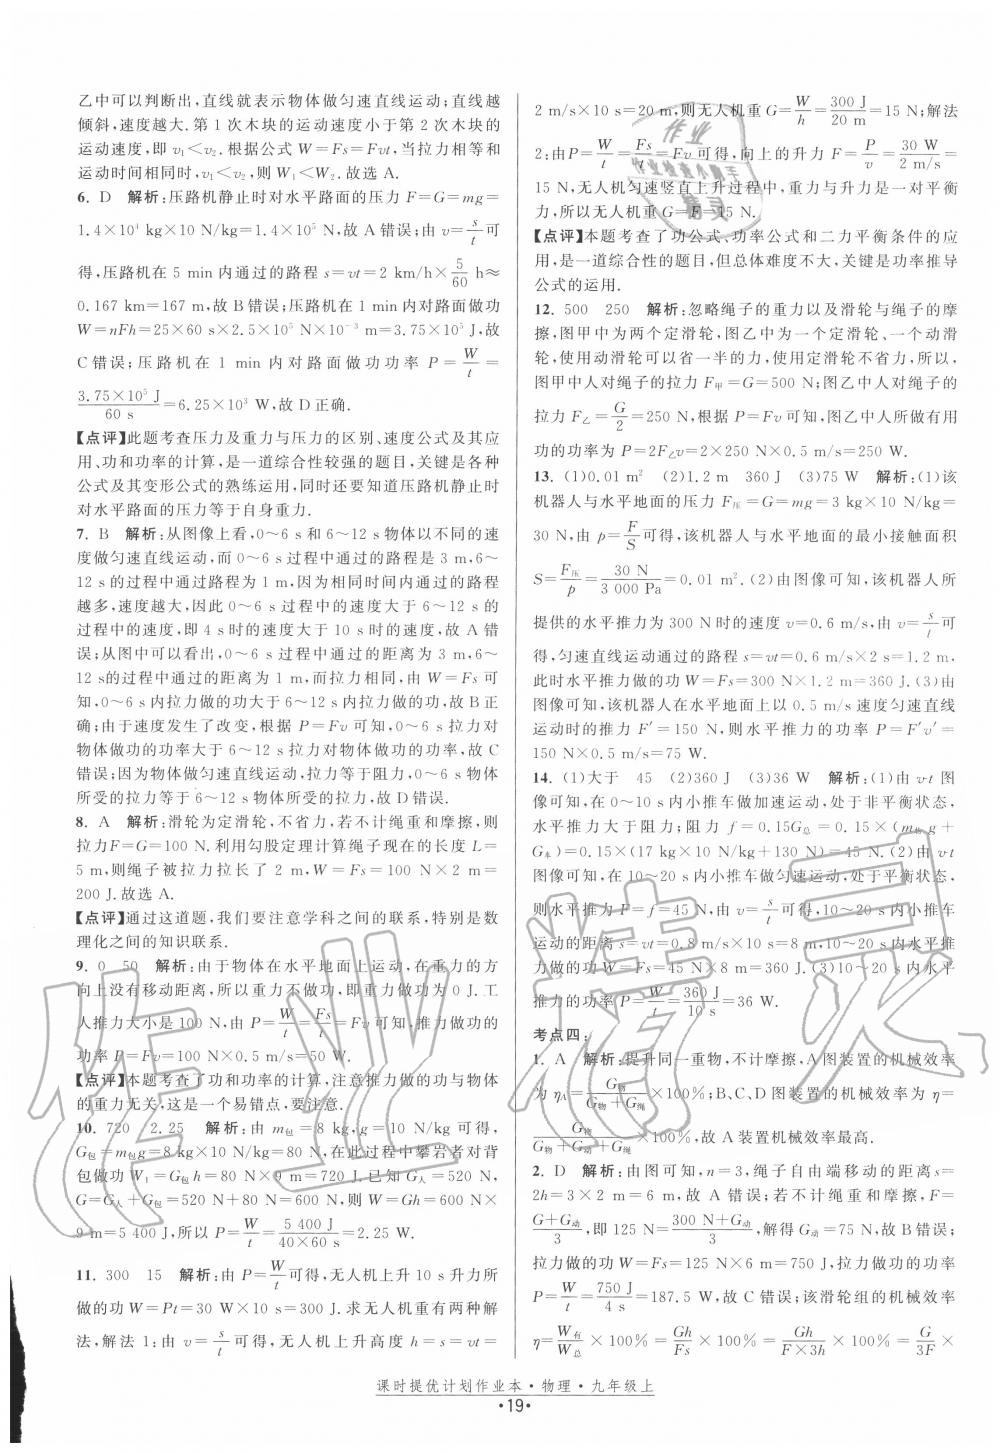 乙中可以判断出,直线就表示物体做匀速直线运动;直线越
倾斜,速度越大.第 1 次木块的运动速度小于第 2 次木块的
运动速度,即 v₁<v₂.根据公式 W=Fs=Fvt,当拉力相等和
运动时间相同时,v₁<v₂,则 W₁<W₂.故选 A.
6. D 解析:压路机静止时对水平路面的压力 F=G=mg=
1.4×10⁴ kg×10 N/kg=1.4×10⁵ N,故 A 错误;由 v=s/t可
得,压路机在 5 min 内通过的路程 s=vt=2 km/h×5/60 h≈
0.167 km=167 m,故 B 错误;压路机在 1 min 内对路面做功
W=nFh=25×60 s×2.5×10⁵ N×10⁻³ m=3.75×10⁵ J,故
C 错误;压路机在 1 min 内对路面做功功率 P=W/t=
3.75×10⁵ J/60 s=6.25×10³ W,故 D 正确.
【点评】此题考查压力及重力与压力的区别、速度公式及其应
用、功和功率的计算,是一道综合性较强的题目,关键是各种
公式及其变形公式的熟练运用,同时还要知道压路机静止时
对水平路面的压力等于自身重力.
7. B 解析:从图像上看,0~6 s 和 6~12 s 物体以不同的速
度做匀速直线运动,而 0~6 s 过程中通过的路程是 3 m,6~
12 s 的过程中通过的路程为 1 m,因为相同时间内通过的路程
越多,速度越大,因此 0~6 s 过程中的速度大于 6~12 s 的
过程中的速度,即 4 s 时的速度大于 10 s 时的速度,故 A 错
误;从图中可以看出,0~6 s 过程中通过的距离为 3 m,6~
12 s的过程中通过的距离为 1 m,而拉力相同,由 W=Fs 可
知,0~6 s 内拉力做的功大于 6~12 s 内拉力做的功,故 B 正
确;由于速度发生了改变,根据 P=Fv 可知,0~6 s 拉力对
物体做功的功率大于 6~12 s 拉力对物体做功的功率,故 C
错误;因为物体做匀速直线运动,拉力等于阻力,0~6 s 物体
所受的拉力等于 6~12 s 物体所受的拉力,故 D 错误.
8. A 解析:滑轮为定滑轮,不省力,若不计绳重和摩擦,则
拉力F=G=100 N.利用勾股定理计算绳子现在的长度 L=
5 m,则绳子被拉力拉长 2 m,W=Fs=100 N×2 m=
200 J.故选 A.
【点评】通过这道题,我们要注意学科之间的联系,特别是数
理化之间的知识联系.
9. 0 50 解析:由于物体在水平地面上运动,在重力的方
向上没有移动距离,所以重力不做功,即重力做功为 0 J.工
人推力大小是 100 N,由 P=W/t=Fs/t=Fv 可知,推力做功的
功率 P=Fv=100 N×0.5 m/s=50 W.
【点评】本题考查了功和功率的计算,注意推力做的功与物体
的重力无关,这是一个易错点,要注意.
10. 720 2.25 解析:由 m包=8 kg,g=10 N/kg 可得,
G包=m包g=8 kg×10 N/kg=80 N,在此过程中攀岩者对背
包做功 W₁=G包h=80 N×9 m=720 J.已知 G人=520 N,
G=G人+G包=520 N+80 N=600 N,则 W=Gh=600 N×
9 m=5 400 J,所以 P=W/t=5 400 J/40×60 s=2.25 W.
11. 300 15 解析:由 P=W/t可得,无人机上升 10 s 升力所
做的功 W=Pt=30 W×10 s=300 J.求无人机重有两种解
法,解法 1:由 v=s/t可得,无人机上升高度 h=s=vt=
2 m/s×10 s=20 m,则无人机重 G=W/h=300 J/20 m=15 N;解法
2:由P=W/t=Fs/t=Fv 可得,向上的升力 F=P/v=30 W/2 m/s=
15 N,无人机匀速竖直上升过程中,重力与升力是一对平衡
力,所以无人机重 G=F=15 N.
【点评】本题考查了功公式、功率公式和二力平衡条件的应
用,是一道综合性的题目,但总体难度不大,关键是功率推导
公式的运用.
12. 500 250 解析:忽略绳子的重力以及滑轮与绳子的摩
擦,图甲中为两个定滑轮,图乙中为一个定滑轮、一个动滑
轮,使用动滑轮可以省一半的力,使用定滑轮不省力,所以,
图甲中人对绳子的拉力 F甲=G=500 N;图乙中人对绳子的
拉力 F乙=G/2=250 N,根据 P=Fv 可知,图乙中人所做有用
功的功率为 P=2F乙v=2×250 N×0.5 m/s=250 W.
13. (1)0.01 m² (2)1.2 m 360 J (3)75 W 解析:(1)该
机器人与水平地面的压力 F压=G=mg=3 kg×10 N/kg=
30 N,由 p=F/S可得,该机器人与水平地面的最小接触面积
S=F压/p=30 N/3 000 Pa=0.01 m².(2)由图像可知,该机器人所
提供的水平推力为 300 N时的速度 v=0.6 m/s,由 v=s/t可
得,匀速直线运动通过的路程 s=vt=0.6 m/s×2 s=1.2 m,
此时水平推力做的功 W=Fs=300 N×1.2 m=360 J.(3)由
图像可知,该机器人在水平地面上以 0.5 m/s 速度匀速直线
运动时的推力 F′=150 N,则水平推力的功率 P=F′v′=
150 N×0.5 m/s=75 W.
14. (1)大于 45 (2)360 J (3)36 W 解析:(1)由 v-t 图
像可知,在 0~10 s 内小推车做加速运动,处于非平衡状态,
水平推力大于阻力;阻力 f=0.15G总=0.15×(m物g+
G车)=0.15×(17 kg×10 N/kg+130 N)=45 N.(2)由 v-t
图像可知,在 10~20 s 内小推车做匀速运动,处于平衡状态,
则水平推力为 F=f=45 N,由 v=s/t可得,10~20 s 内小推车
运动的距离 s=vt=0.8 m/s×10 s=8 m,10~20 s 内水平推
力做的功 W=Fs=45 N×8 m=360 J.(3)10~20 s 内水平
推力的功率 P=W/t=360 J/10 s=36 W.
考点四:
1. A 解析:提升同一重物,不计摩擦,A 图装置的机械效率
为 ηA=G物/G物+G绳×100%;B、C、D 图装置的机械效率为 η=
G物/G物+G动+G绳×100%,故 A 装置机械效率最高.
2. D 解析:由图可知,n=3,绳子自由端移动的距离 s=
2h=3×2 m=6 m,故 A 错误;若不计绳重和摩擦,F=
G+G动/3,即 125 N=300 N+G动/3,解得 G动=75 N,故 B 错误;
拉力做的功 W=Fs=125 N×6 m=750 J,拉力做功的功率
P=W/t=750 J/4 s=187.5 W,故 C 错误;该滑轮组的机械效率
η=W有/W总×100%=Gh/Fs×100%=Gh/F×3h×100%=G/3F×
课时提优计划作业本·物理·九年级上
·19·
作业精灵